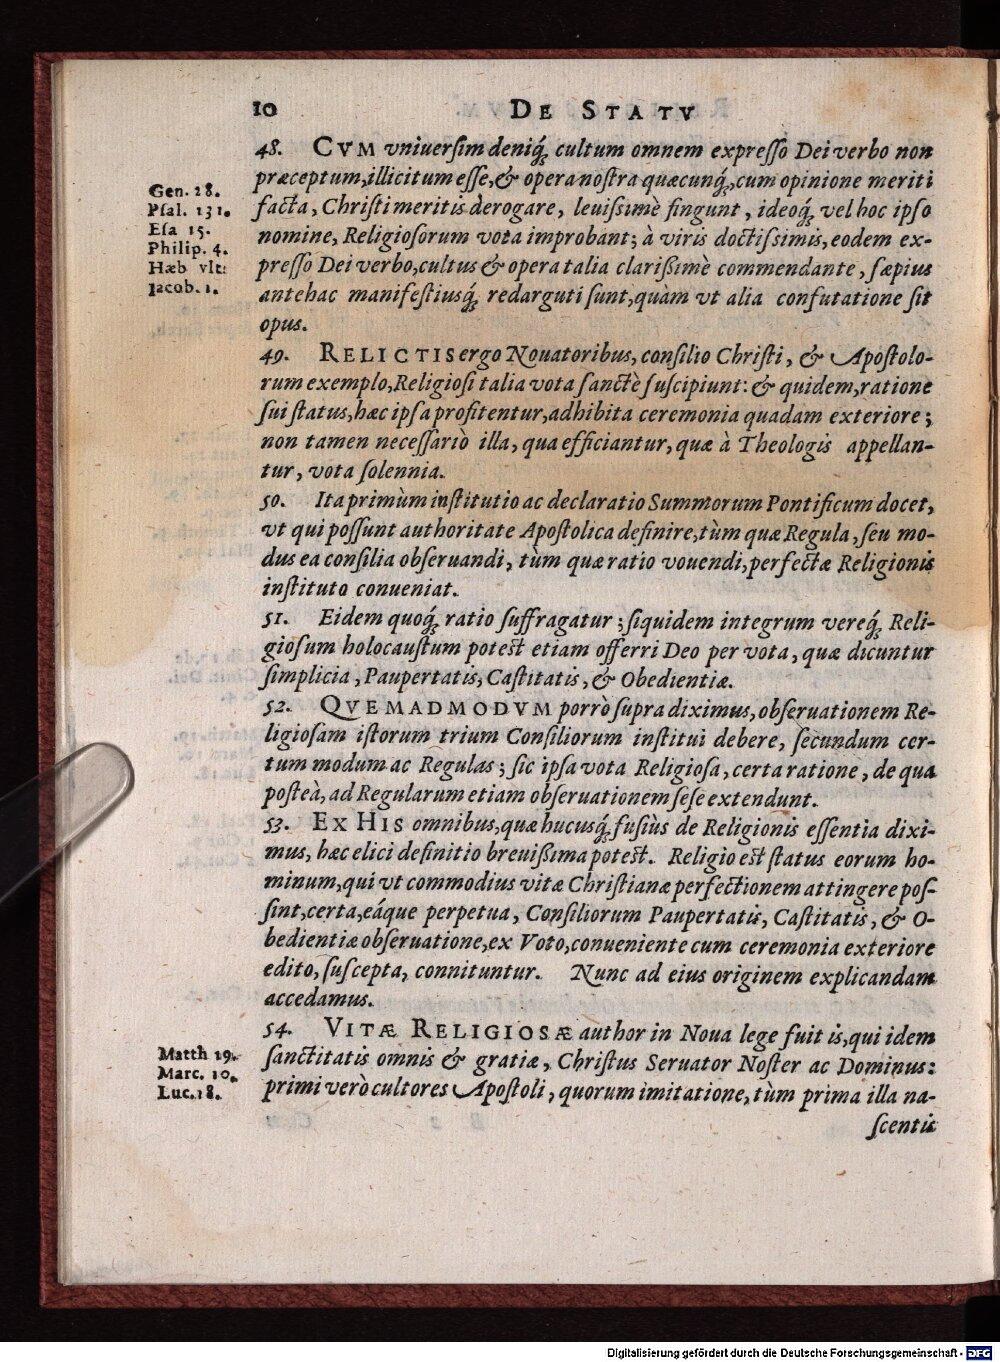 10 DE STATV
48. CVM vniuersim deniq́; cultum omnem expresso Dei verbo non
præceptum, illicitum esse, & opera nostra quæcunq́;, cum opinione meriti
Gen. 28.
Psal. 131.
Esa 15.
Philip. 4.
Hæb vlt:
Iacob. 1.
facta, Christi meritis derogare, leuissimè fingunt, ideoq́; vel hoc ipso
nomine, Religiosorum vota improbant; à viris doctissimis, eodem ex-
presso Dei verbo, cultus & opera talia clarißimè commendante, sæpius
antehac manifestiusq́; redarguti sunt, quàm vt alia confutatione sit
opus.
49. RELICTIS ergo Nouatoribus, consilio Christi, & Apostolo-
rum exemplo, Religiosi talia vota sanctè suscipiunt: & quidem, ratione
sui status, hæc ipsa profitentur, adhibita ceremonia quadam exteriore;
non tamen necessariò illa, qua efficiantur, quæ à Theologis appellan-
tur, vota solennia.
50. Ita primùm institutio ac declaratio Summorum Pontificum docet,
vt qui possunt authoritate Apostolica definire, tùm quæ Regula, seu mo-
dus ea consilia obseruandi, tùm quæ ratio vouendi, perfectæ Religionis
instituto conueniat.
51. Eidem quoq́; ratio suffragatur; siquidem integrum vereq́; Reli-
giosum holocaustum potest etiam offerri Deo per vota, quæ dicuntur
simplicia, Paupertatis, Castitatis, & Obedientiæ.
52. QVEMADMODVM porrò supra diximus, obseruationem Re-
ligiosam istorum trium Consiliorum institui debere, secundum cer-
tum modum ac Regulas; sic ipsa vota Religiosa, certa ratione, de qua
posteà, ad Regularum etiam obseruationem sese extendunt.
53. EX HIS omnibus, quæ hucusq́; fusiùs de Religionis essentia dixi-
mus, hæc elici definitio breuißima potest. Religio est status eorum ho-
minum, qui vt commodius vitæ Christianæ perfectionem attingere pos-
sint, certa, eáque perpetua, Consiliorum Paupertatis, Castitatis, & O-
bedientiæ obseruatione, ex Voto, conueniente cum ceremonia exteriore
edito, suscepta, connituntur. Nunc ad eius originem explicandam
accedamus.
54. VITÆ RELIGIOSÆ author in Noua lege fuit is, qui idem
Matth 19.
Marc. 10.
Luc. 18.
sanctitatis omnis & gratiæ, Christus Seruator Noster ac Dominus:
primi verò cultores Apostoli, quorum imitatione, tùm prima illa na-
scentis
Digitalisierung gefördert durch die Deutsche Forschungsgemeinschaft - DFG